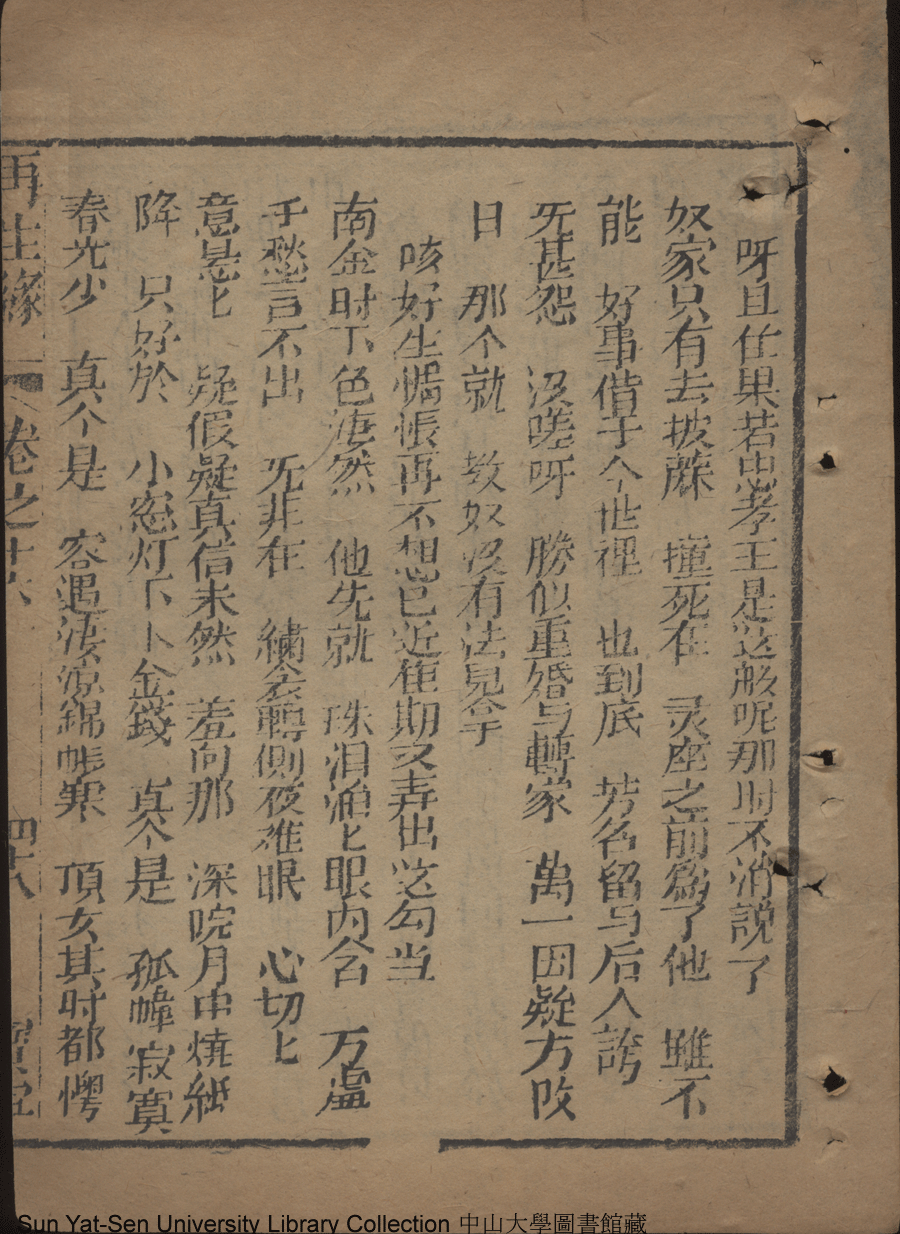 呀且住果若忠孝王是这般呢那时不消説了
奴家只有去披蔴　撞死在　灵座之前為了他　雖不
能　好事偕于今世裡　也到底　芳名留与后人誇
死甚怨　没嗟呀　勝似重婚与轉家　萬一因疑方改
日　那个就　教奴没有法兒拿
咳好生惆悵再不想已近佳期又弄出这勾当
南金时下色淒然　他先就　珠泪泊匕眼内含　万慮
千愁言不出　无非在　繍衾轉側夜难眠　心切匕
意悬匕　疑假疑真信未然　羞向那　深院月中燒紙
降　只好於　小窓灯下卜金錢　真个是　孤幃寂寞
春光少　真个是　容遇淒凉錦帳寒　項女其时都愕
再生緣　卷之十六　四十八　寶
Sun Yat-Sen University Library Collection 中山大學圖書館藏